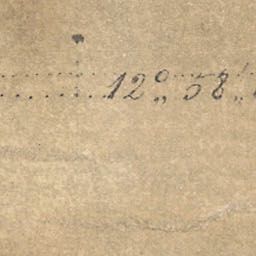 ........12°„58'„